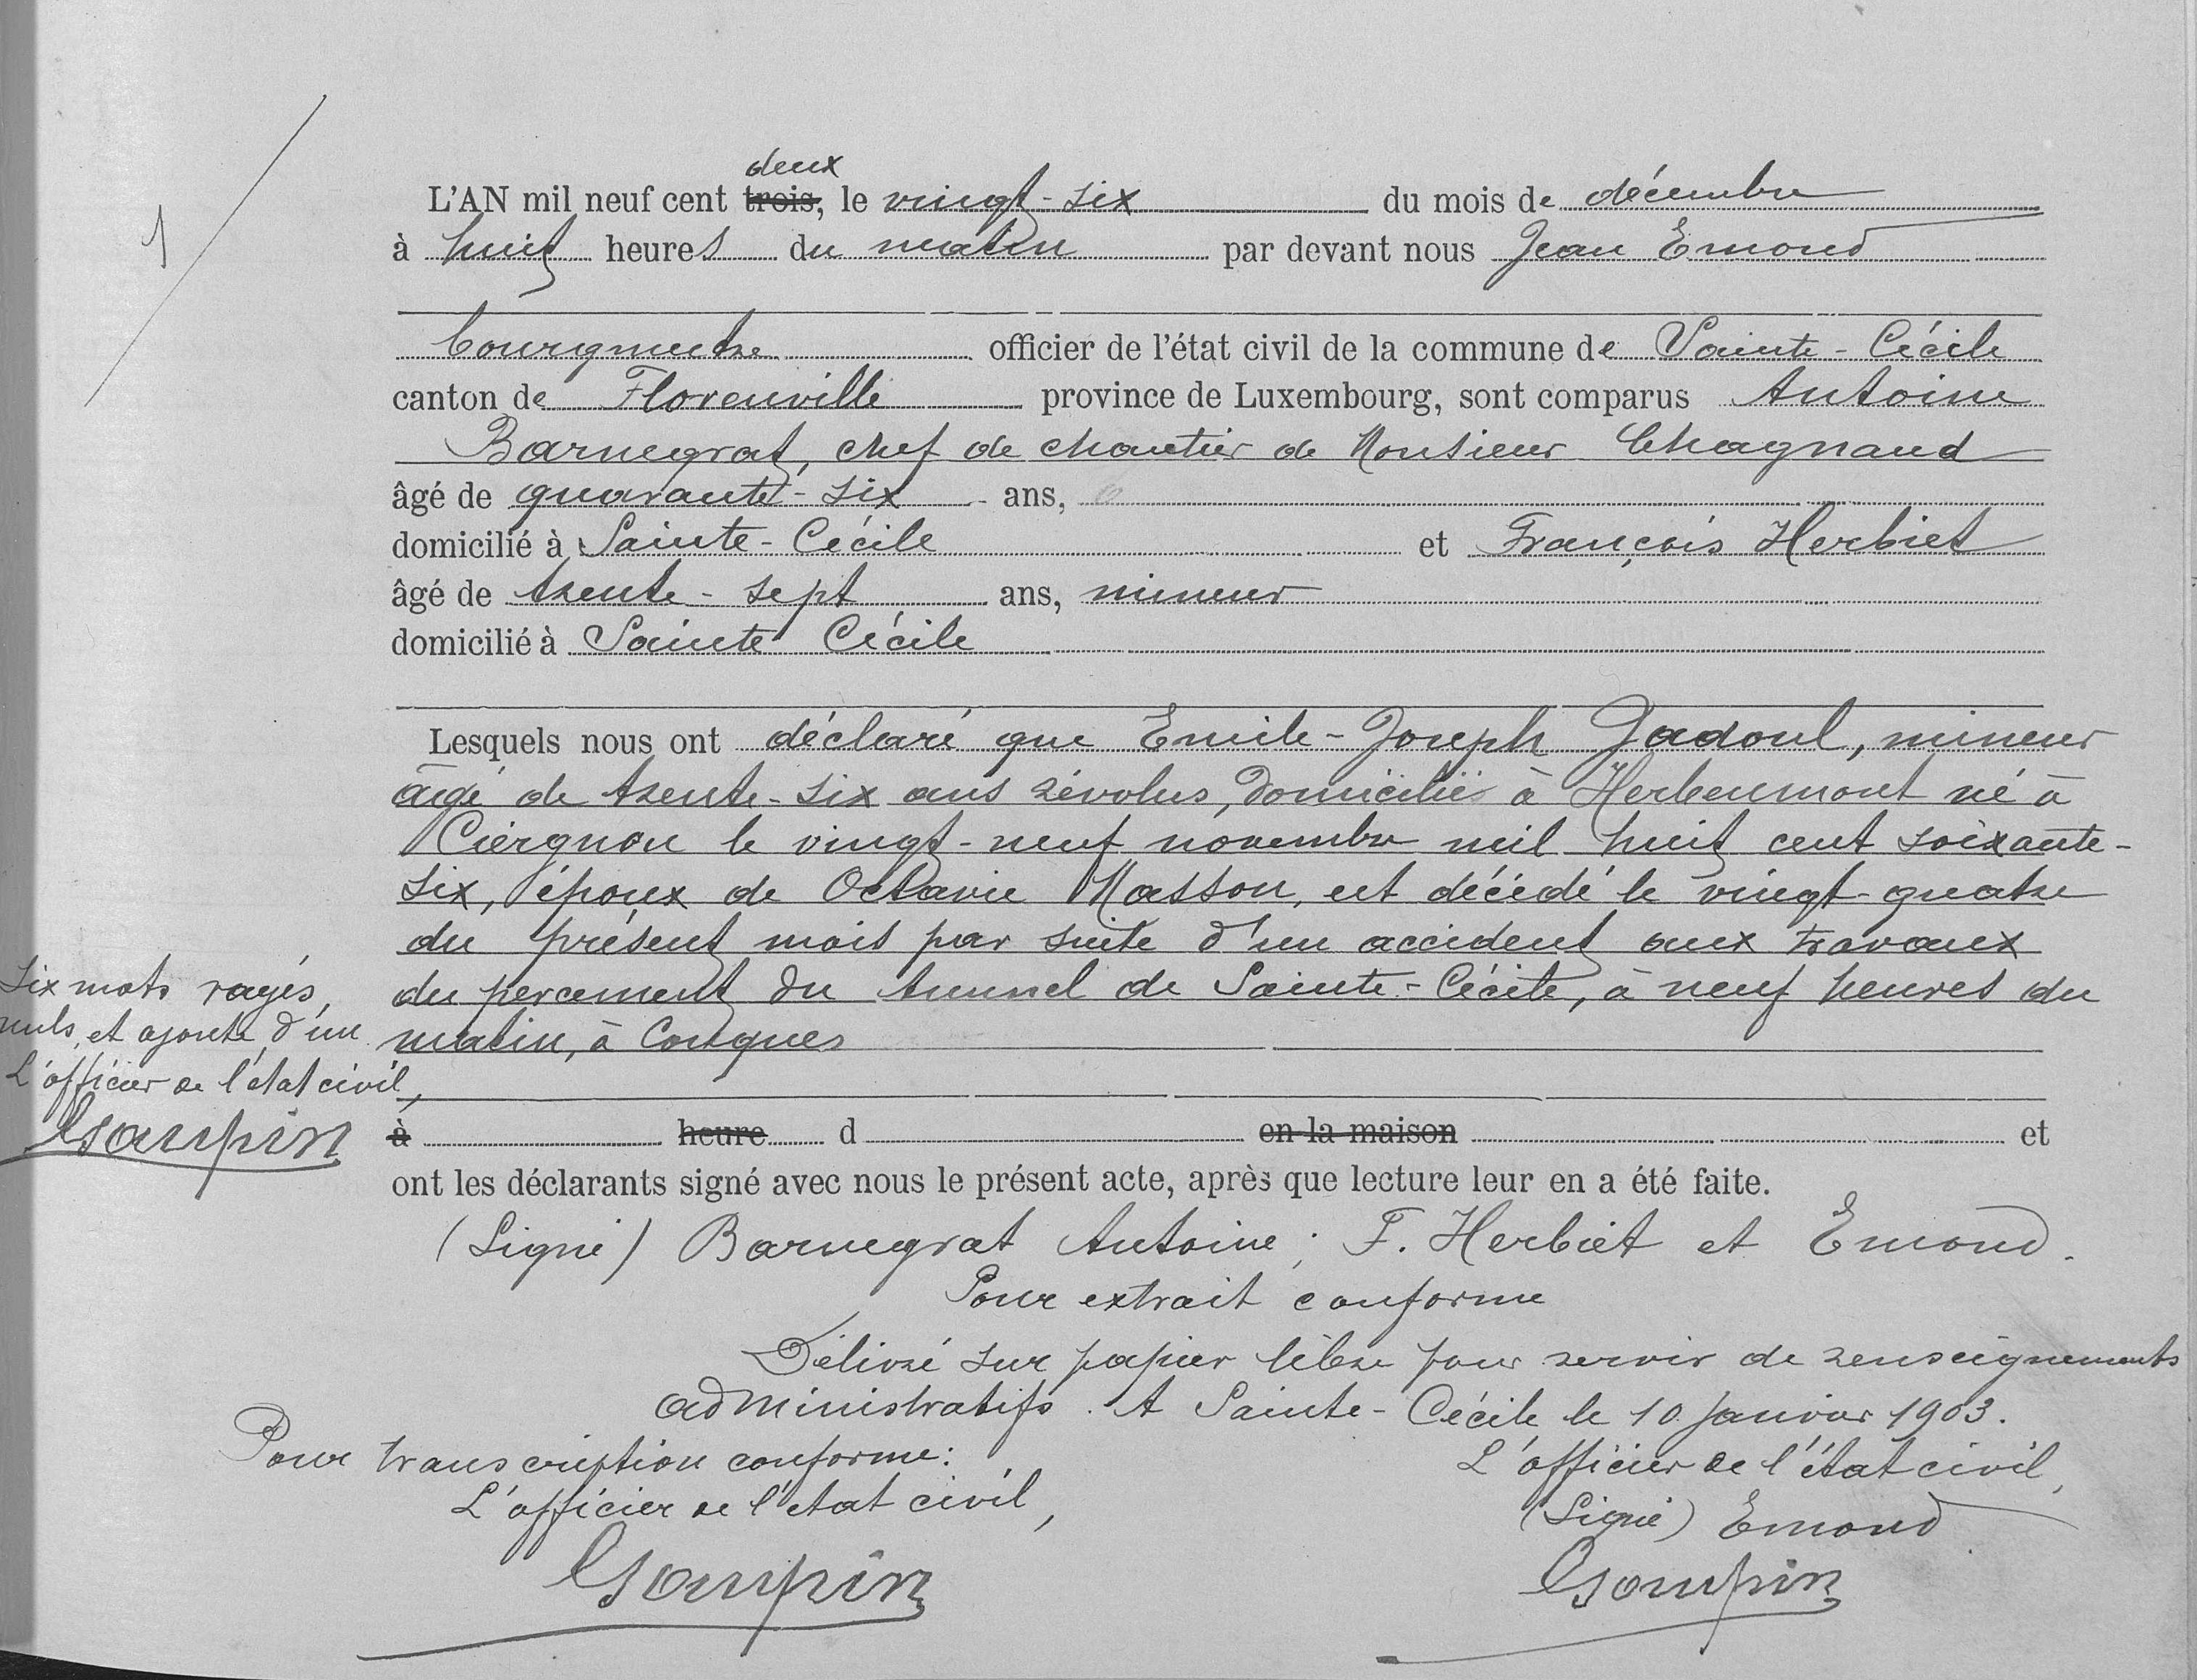 1
deux
L'AN mil neuf cent trois, le vingt-six du mois de décembre
à huit heures du matin par devant nous Jean Emond
bourgmestre officier de l'état civil de la commune de Sainte-Cécile
canton de Florenville province de Luxembourg, sont comparus Antoine
Barnegrat, chef de chantier de Monsieur Chagnaud
âgé de quarante-six ans,
domicilié à Sainte-Cécile et François Herbiet
âgé de trente-sept ans, mineur
domicilié à Sainte Cécile
Lesquels nous ont déclaré que Emile-Joseph Jadoul, mineur
âgé de trente-six ans révolus, domicilié à Herbeumont né à
Ciergnon le vingt-neuf novembre mil huit cent soixante-
six, époux de Octavie Masson, est décédé le vingt-quatre
du présent mois par suite d'un accident aux travaux
du percement du tunnel de Sainte-Cécile, à neuf heures du
matin, à Conques
Six mots rayés,
nuls, et ajouté d'un
L'officier de l'état civil,
à heure d en la maison et
ont les déclarants signé avec nous le présent acte, après que lecture leur en a été faite.
(Signé) Barnegrat Antoine; F. Herbiet et Emond.
Pour extrait conforme
Délivré sur papier libre pour servir de renseignements
administratifs. A Sainte-Cécile le 10 janvier 1903.
Pour transcription conforme:
L'officier de l'état civil,
L'officier de l'état civil,
(Signé) Emond